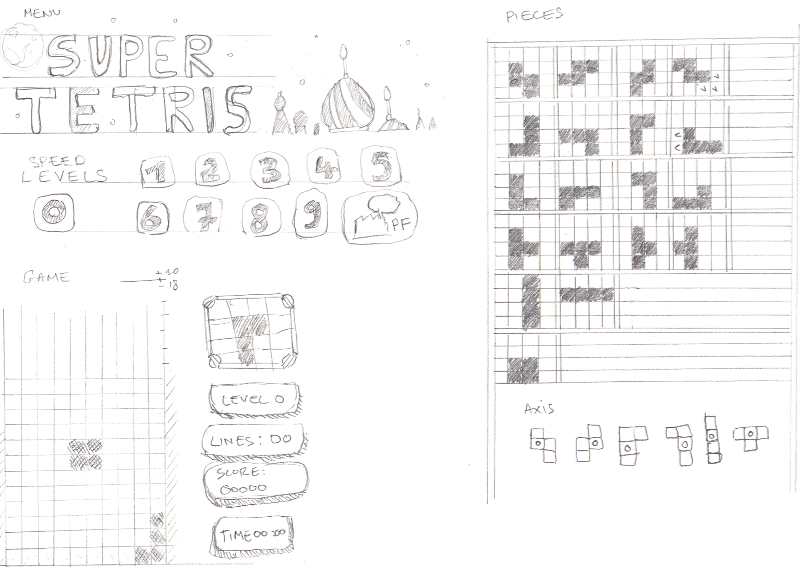 MENU
SUPER
TETRIS
SPEED
LEVELS
1 2 3 4 5
0 6 7 8 9 PF
GAME
LEVEL 0
LINES: 00
SCORE:
00000
TIME 00:00
PIECES
AXIS